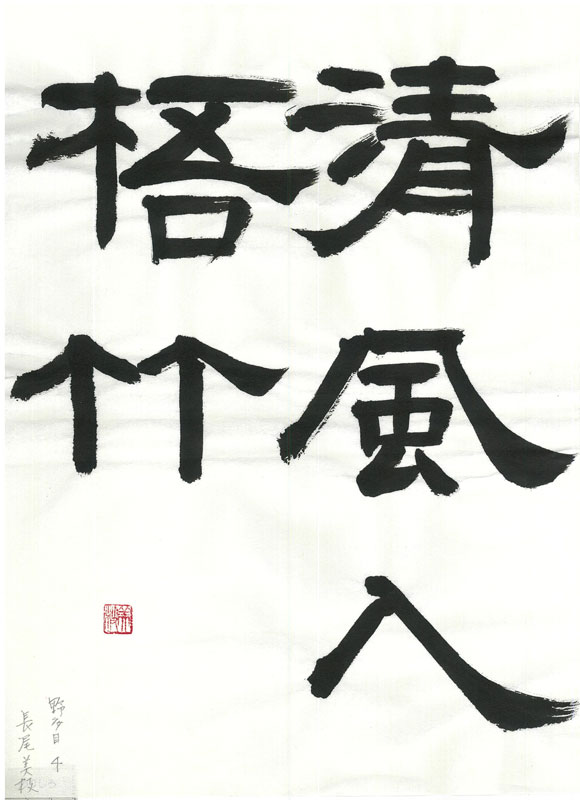 清風入
梧竹
野多目 4
長尾美枝